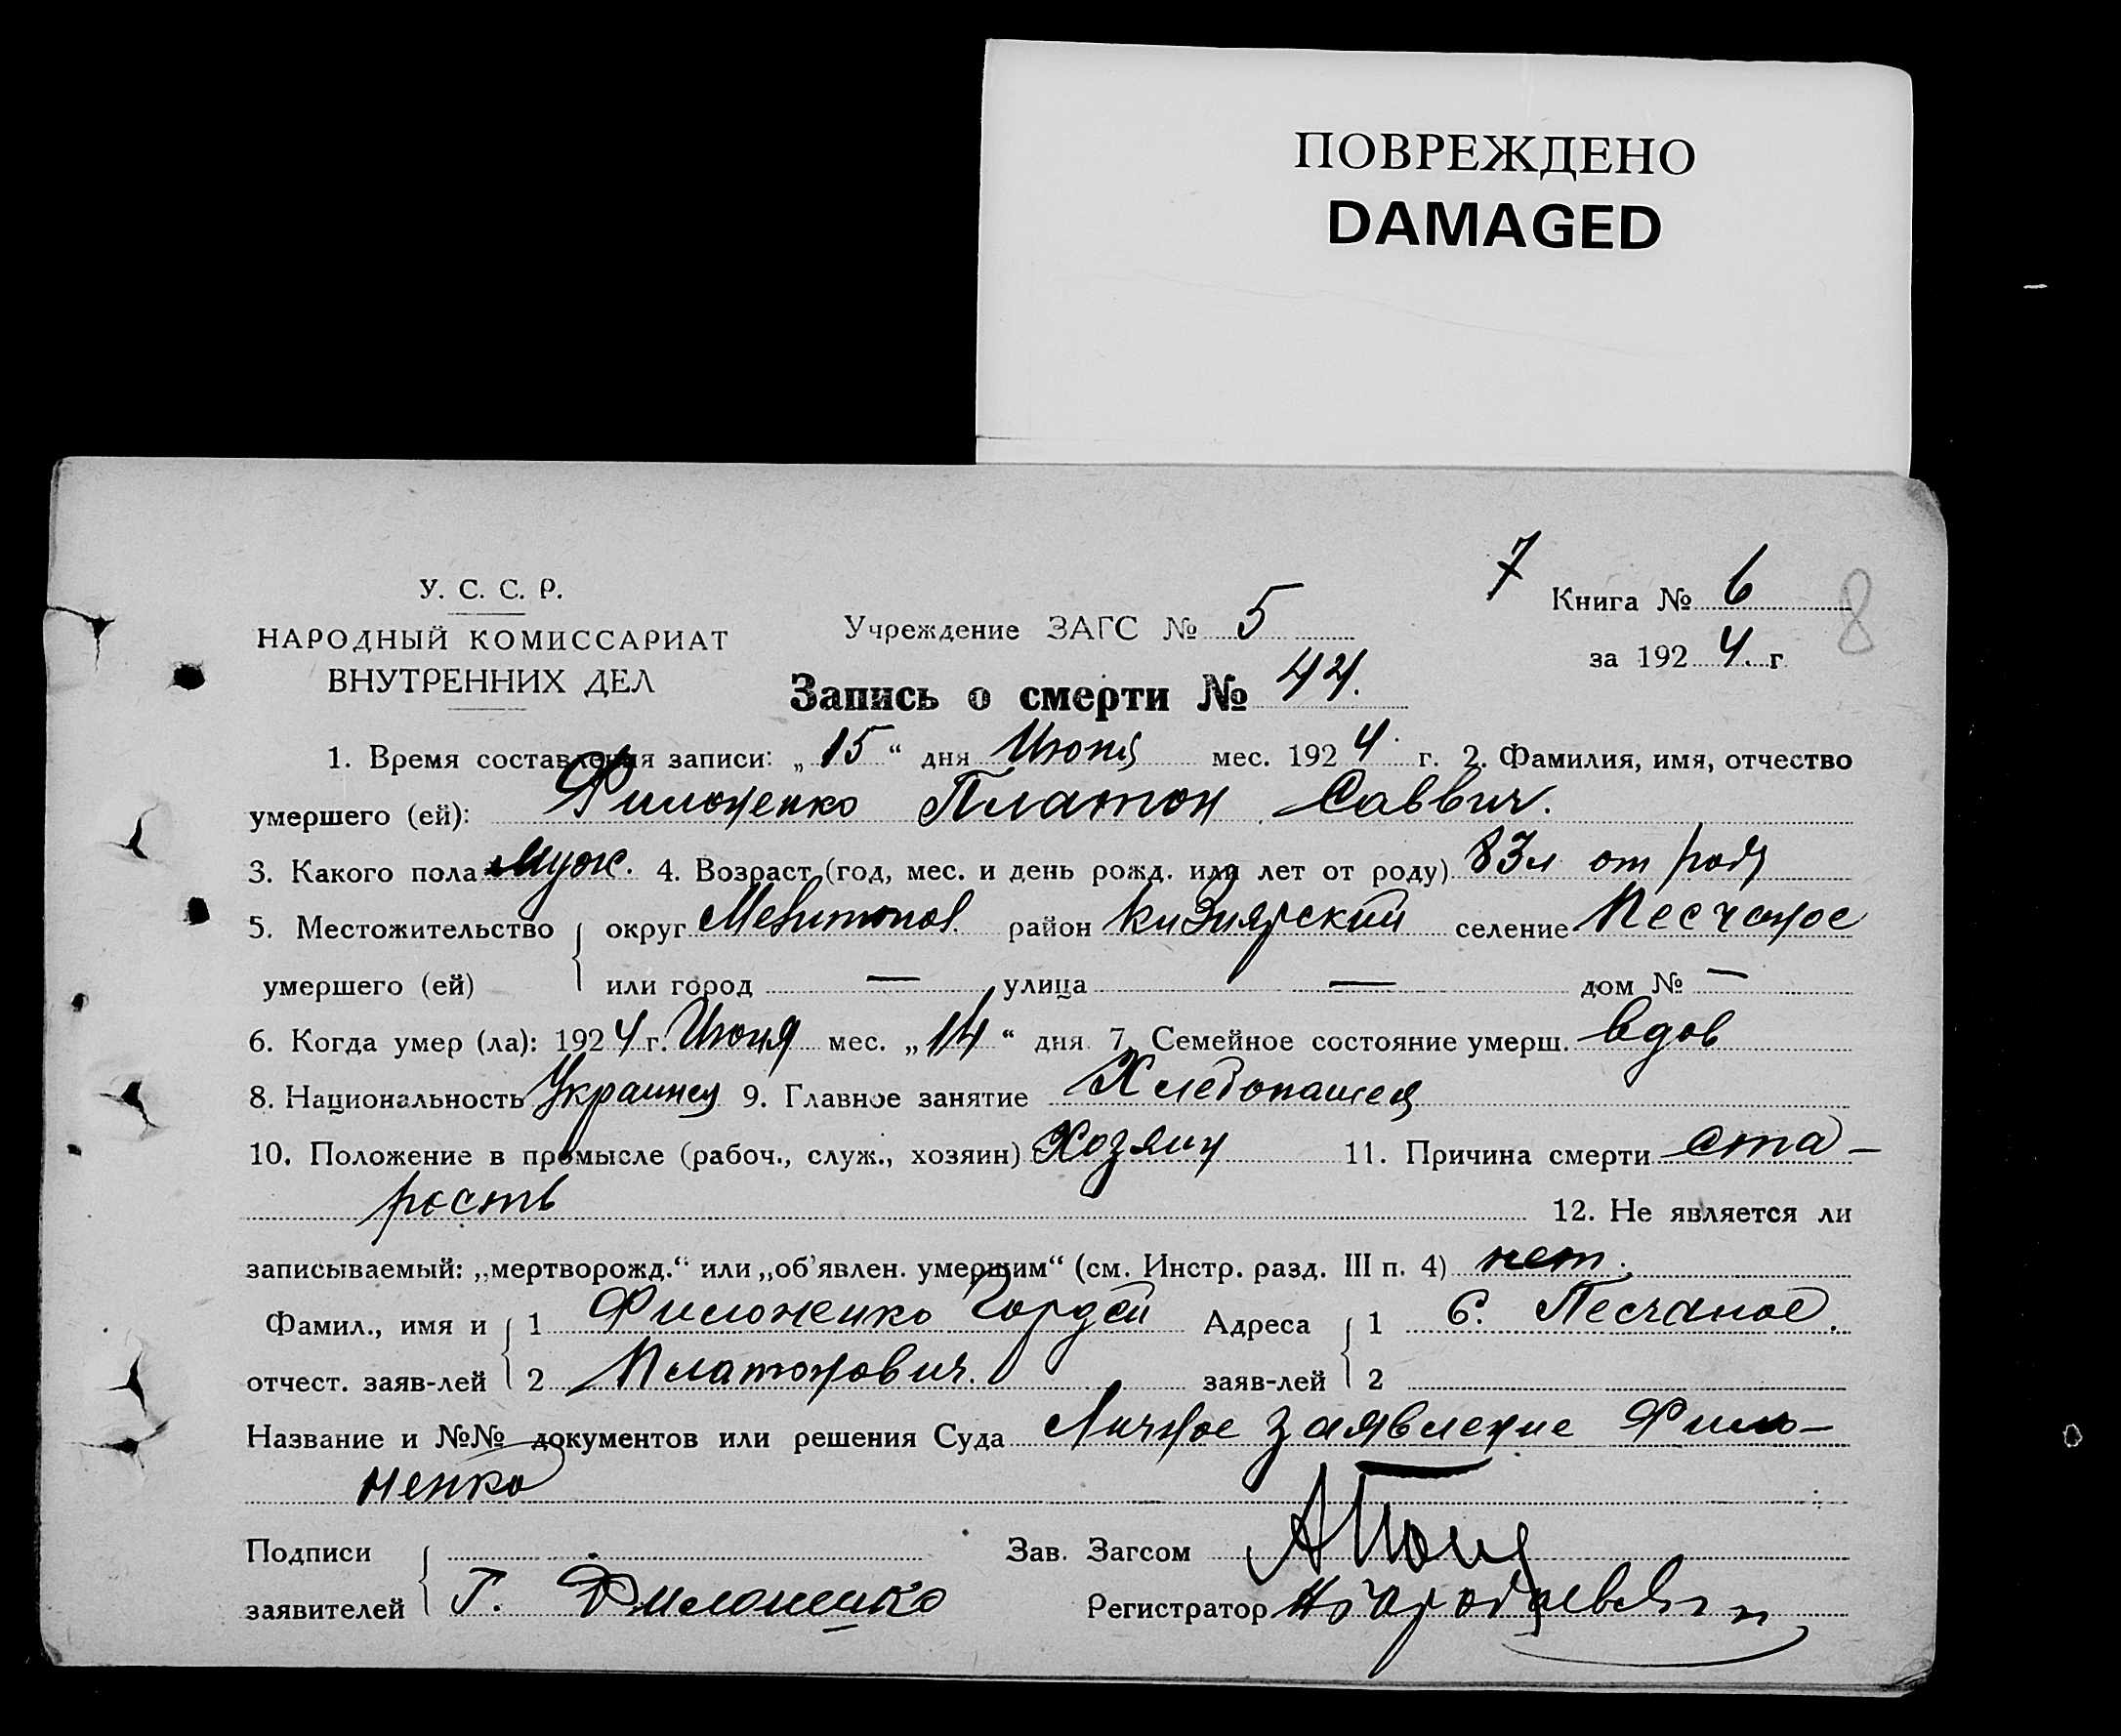 ПОВРЕЖДЕНО
DAMAGED
У. С. С. Р.
НАРОДНЫЙ КОМИССАРИАТ
ВНУТРЕННИХ ДЕЛ
Учреждение ЗАГС № 5
7 Книга № 6
8
за 1924 г
Запись о смерти № 44.
1. Время составления записи: „15“ дня Июня мес. 1924 г. 2. Фамилия, имя, отчество
умершего (ей): Филоненко Платон Саввич.
3. Какого пола муж. 4. Возраст (год, мес. и день рожд. или лет от роду) 83 л от роду
5. Местожительство округ Мелитопол. район Кизиярский селение Песчаное
умершего (ей) или город — улица — дом № —
6. Когда умер (ла): 1924 г. Июня мес. „14“ дня 7. Семейное состояние умерш. вдов
8. Национальность Украинец 9. Главное занятие Хлебопашец
10. Положение в промысле (рабоч., служ., хозяин) Хозяин 11. Причина смерти ста-
рость 12. Не является ли
записываемый: „мертворожд.“ или „об’явлен. умершим“ (см. Инстр. разд. III п. 4) нет.
Фамил., имя и 1 Филоненко Гордей Адреса 1 С. Песчаное.
отчест. заяв-лей 2 Платонович. заяв-лей 2
Название и №№ документов или решения Суда Личное заявление Фило-
ненко
Подписи Зав. Загсом
заявителей Г. Филоненко Регистратор